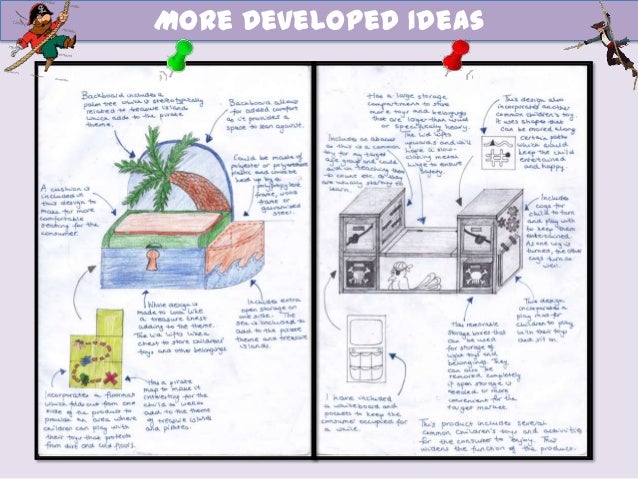 MORE DEVELOPED IDEAS
Backboard includes a
palm tree which is stereotypically
related to treasure island
which adds to the pirate
theme.
Backboard allows
for added comfort
as it provides a
space to lean against.
Could be made of
polyester or
plastic and could be
held up by a
frame, wood
frame or
galvanised
steel.
A cushion is
included in
this design to
make for more
comfortable
seating for the
consumer.
While design is
made to look like
a treasure chest
adding to the theme.
The lid lifts like a
chest to store childrens'
toys and other belongings.
Includes extra
open storage on
one side. The
sea is included to
add to the pirate
theme and treasure
islands.
Incorporates a floormat
which folds out from one
side of the product to
provide an area where
children can play with
their toys that protects
from dirt and cold floors.
Has a pirate
map to make it
interesting for the
child as well as
add to the theme
of treasure islands
and pirates.
Has a large storage
compartment to store
more toys and belongings
that are larger than usual
or specifically heavy.
The lid lifts
upwards and will
have a slow
closing metal
hinge to ensure
safety.
Includes an abacus
as this is a common
toy for my target
age group and could
aid in teaching them
to count etc. as they
are usually starting to
learn.
This design also
incorporates another
common children's toy.
It uses shapes that
can be moved along
certain paths
which would
keep the child
entertained
and happy.
Includes
cogs for
child to turn
and play with
to keep them
entertained.
As one cog is
turned, the other
cogs turn as
well.
This design
incorporates a
play mat for
children to play
with their toys
and sit on.
Has removable
storage boxes that
can be used
for storage of
light toys and
belongings. They
can also be
removed completely
if open storage is
needed or more
convenient for the
target market.
I have included
a whiteboard and
pockets to keep the
consumer occupied for
a while.
This product includes several
common children's toys and activities
for the consumer to enjoy. This
widens the function of the product.